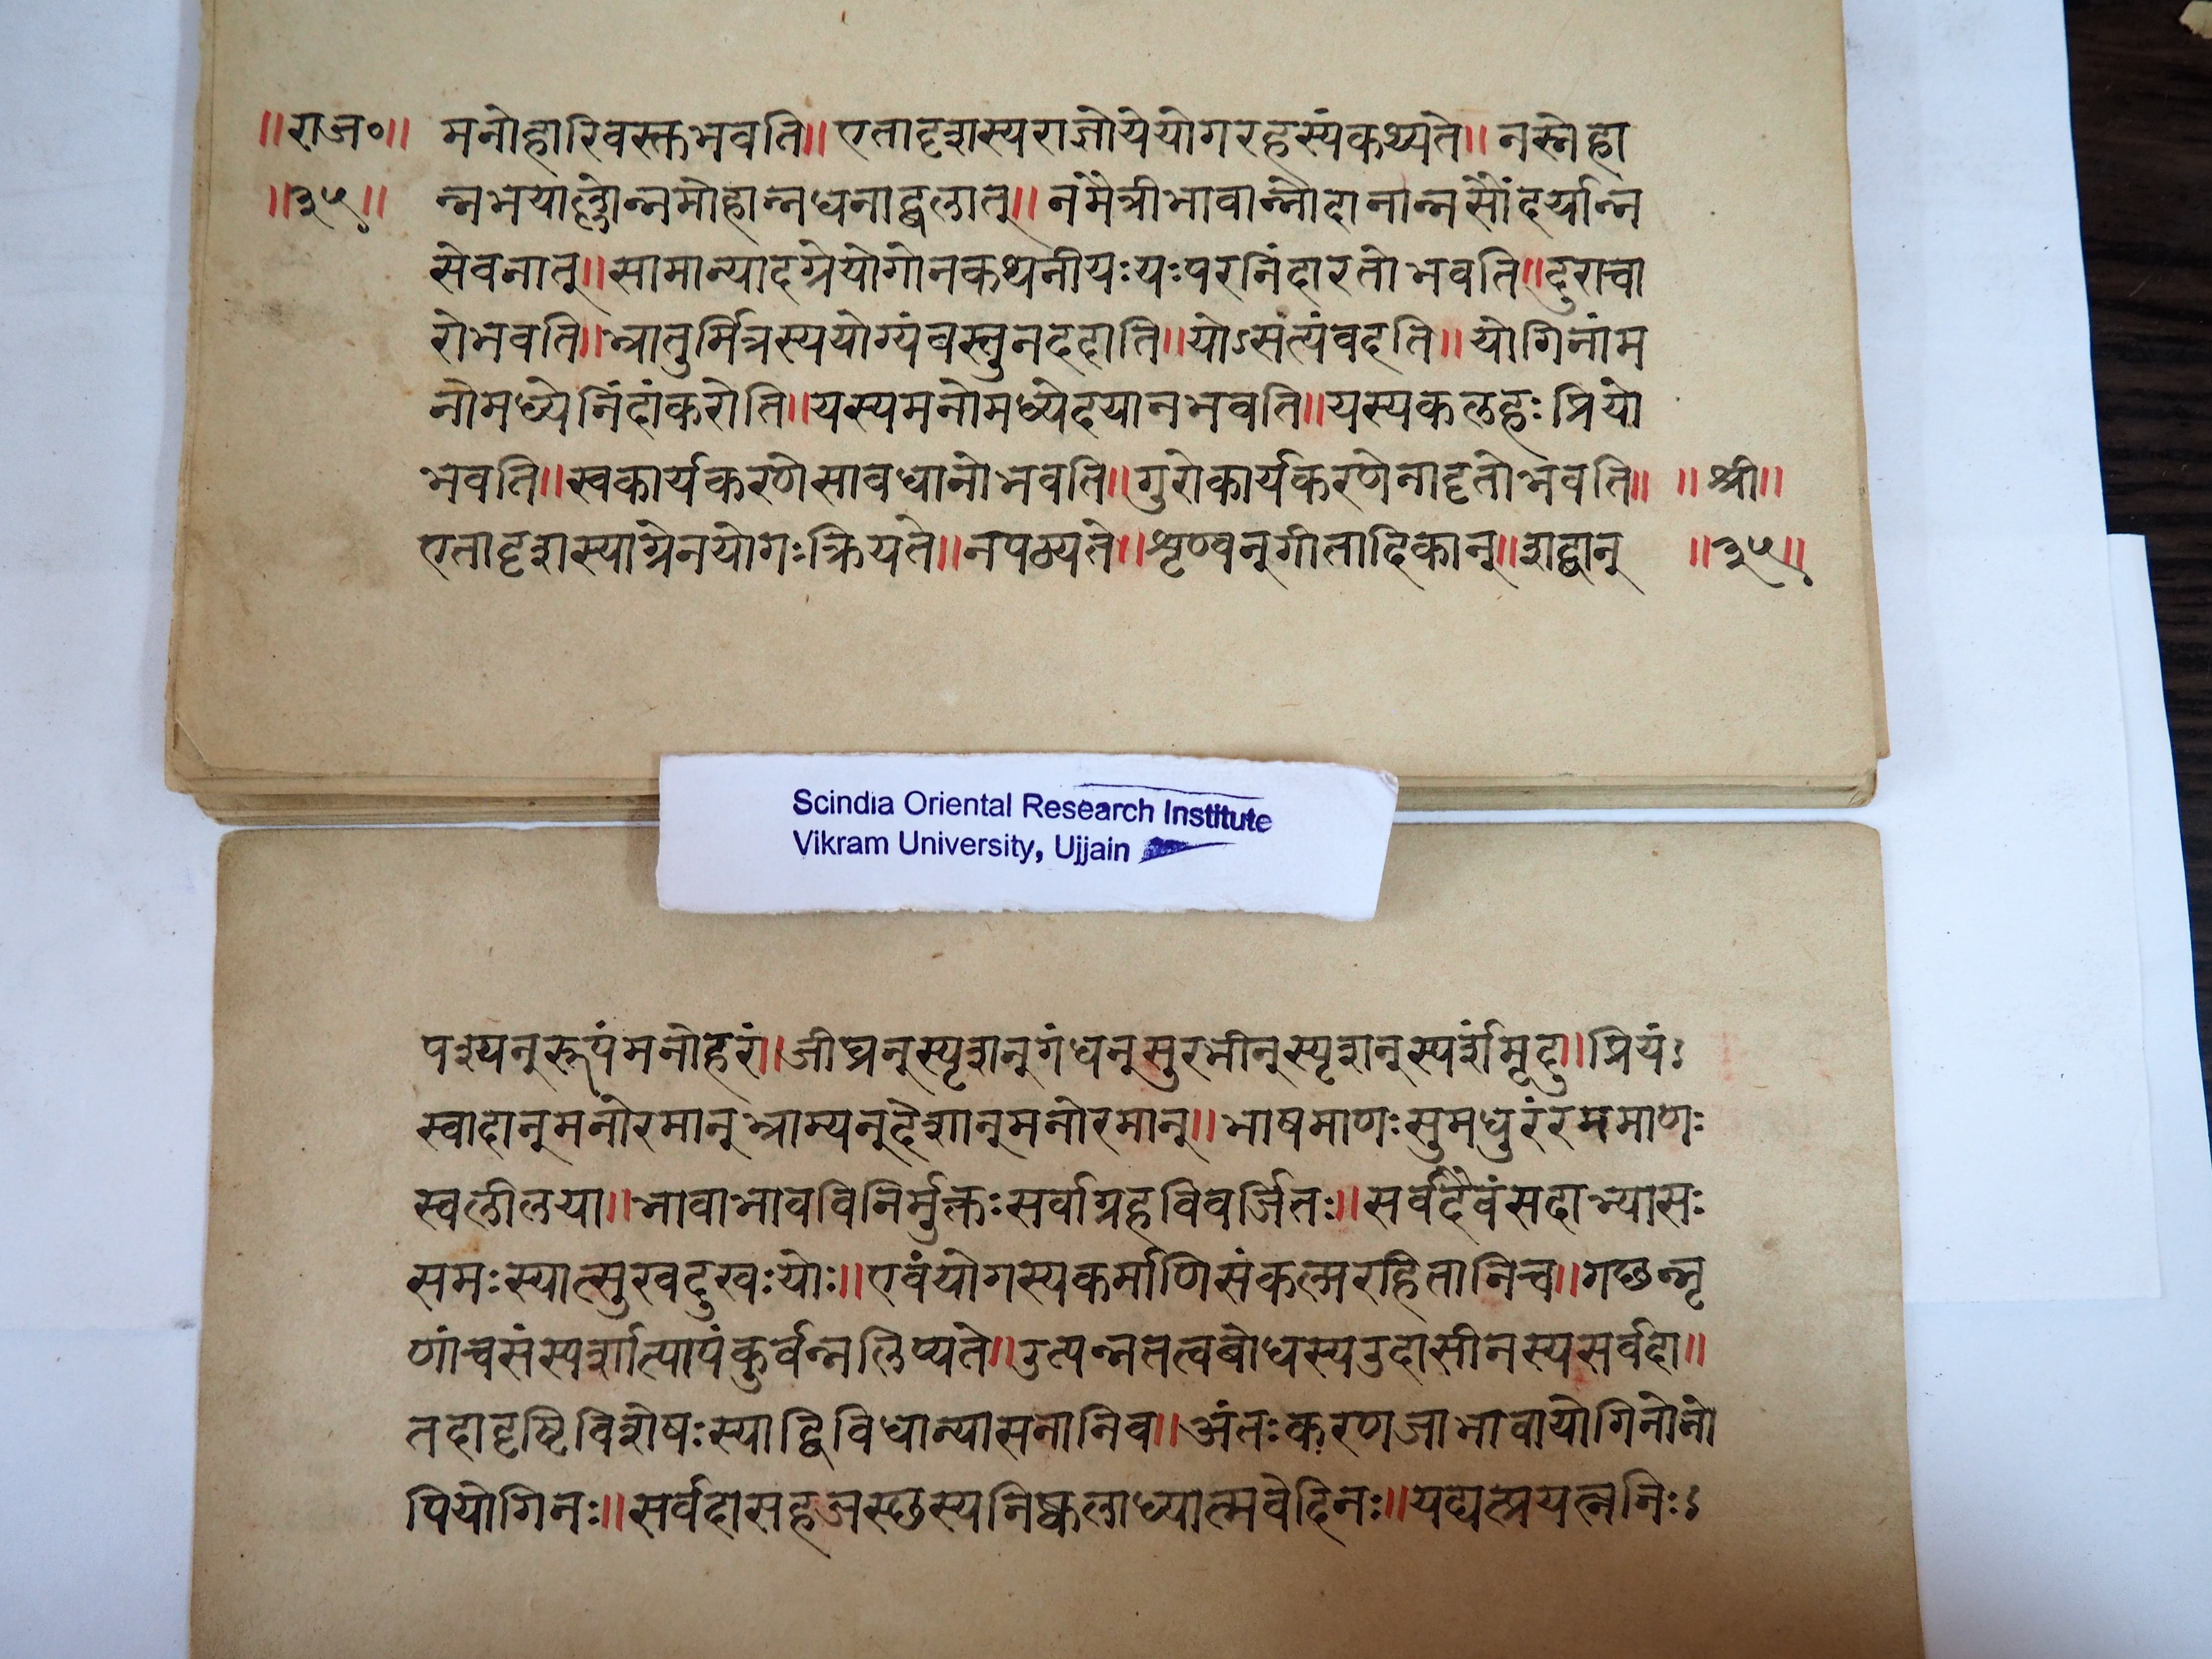 ॥राज०॥ मनोहारिवस्त्तभवति॥एतादृशस्यराज्ञोयेयोगरहस्यंकथ्यते॥नस्नेहा
॥३५॥ न्नभयाल्लोन्नमोहान्नधनाद्बलात्॥नमैत्रीभावान्नोदानान्नसौंदर्यान्न
सेवनात्॥सामान्यादग्रेयोगोनकथनीयःयःपरनिंदारतोभवति॥दुराचा
रोभवति॥भ्रातुर्मित्रस्ययोग्यंवस्तुनददाति॥योऽसंत्यंवदति॥योगिनांम
नोमध्येनिंदांकरोति॥यस्यमनोमध्येदयानभवति॥यस्यकलहःप्रियो
भवति॥स्वकार्यकरणेसावधानोभवति॥गुरोकार्यकरणेनादृतोभवति॥ ॥श्री॥
एतादृशस्याग्रेनयोगःक्रियते॥नपठ्यते॥शृण्वन्गीतादिकान्॥शद्बान् ॥३५॥
Scindia Oriental Research Institute
Vikram University, Ujjain
पश्यन्रूपंमनोहरं॥जीघ्रन्स्पृशन्गंधन्सुरभीन्स्पृशन्स्पर्शंमृदु॥प्रियं
स्वादान्मनोरमान्भ्राम्यन्देशान्मनोरमान्॥भाषमाणःसुमधुरंरममाणः
स्वलीलया॥भावाभावविनिर्मुक्तःसर्वाग्रहविवर्जितः॥सर्वदैवंसदाभ्यासः
समःस्यात्सुखदुखःयोः॥एवंयोगस्यकर्माणिसंकल्परहितानिच॥गछन्नृ
णांचसंस्पर्शात्पापंकुर्वन्नलिप्यते॥उत्पन्नतत्वबोधस्यउदासीनस्यसर्वदा॥
तदादृष्टिविशेषःस्याद्विविधान्यासनानिव॥अंतःकरणजाभावायोगिनोनो
पियोगिनः॥सर्वदासहजस्छस्यनिष्कलाध्यात्मवेदिनः॥यद्यत्प्रयत्ननिः